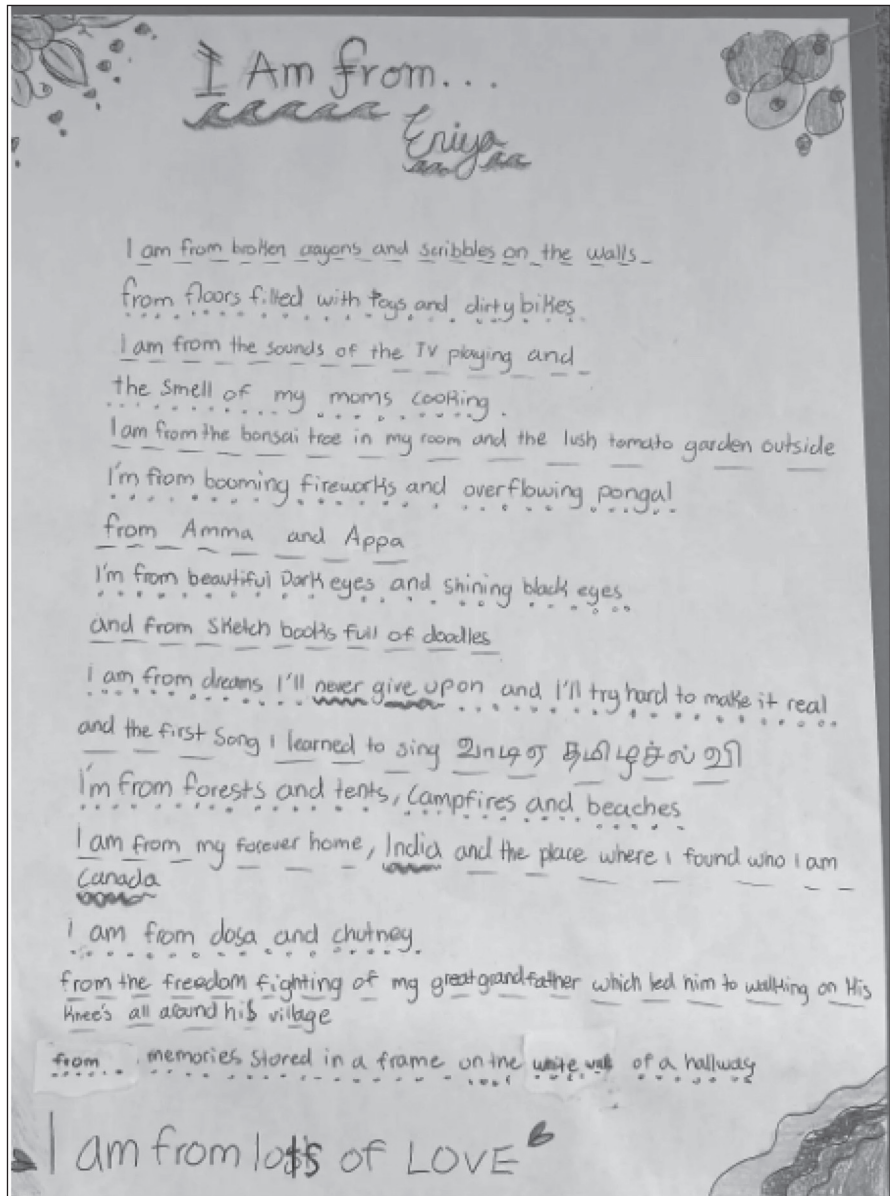 I Am from...
Eniya
I am from broken crayons and scribbles on the walls
from floors filled with toys and dirty bikes
I am from the sounds of the TV playing and
the smell of my moms cooking.
I am from the bonsai tree in my room and the lush tomato garden outside
I'm from booming fireworks and overflowing pongal
from Amma and Appa
I'm from beautiful Dark eyes and shining black eyes
and from sketch books full of doodles
I am from dreams I'll never give upon and I'll try hard to make it real
and the first song I learned to sing
I'm from forests and tents, campfires and beaches
I am from my forever home, India and the place where I found who I am
Canada
I am from dosa and chutney
from the freedom fighting of my great grandfather which led him to walking on His
Knee's all around his village
from memories stored in a frame on the white wall of a hallway
I am from lots of LOVE